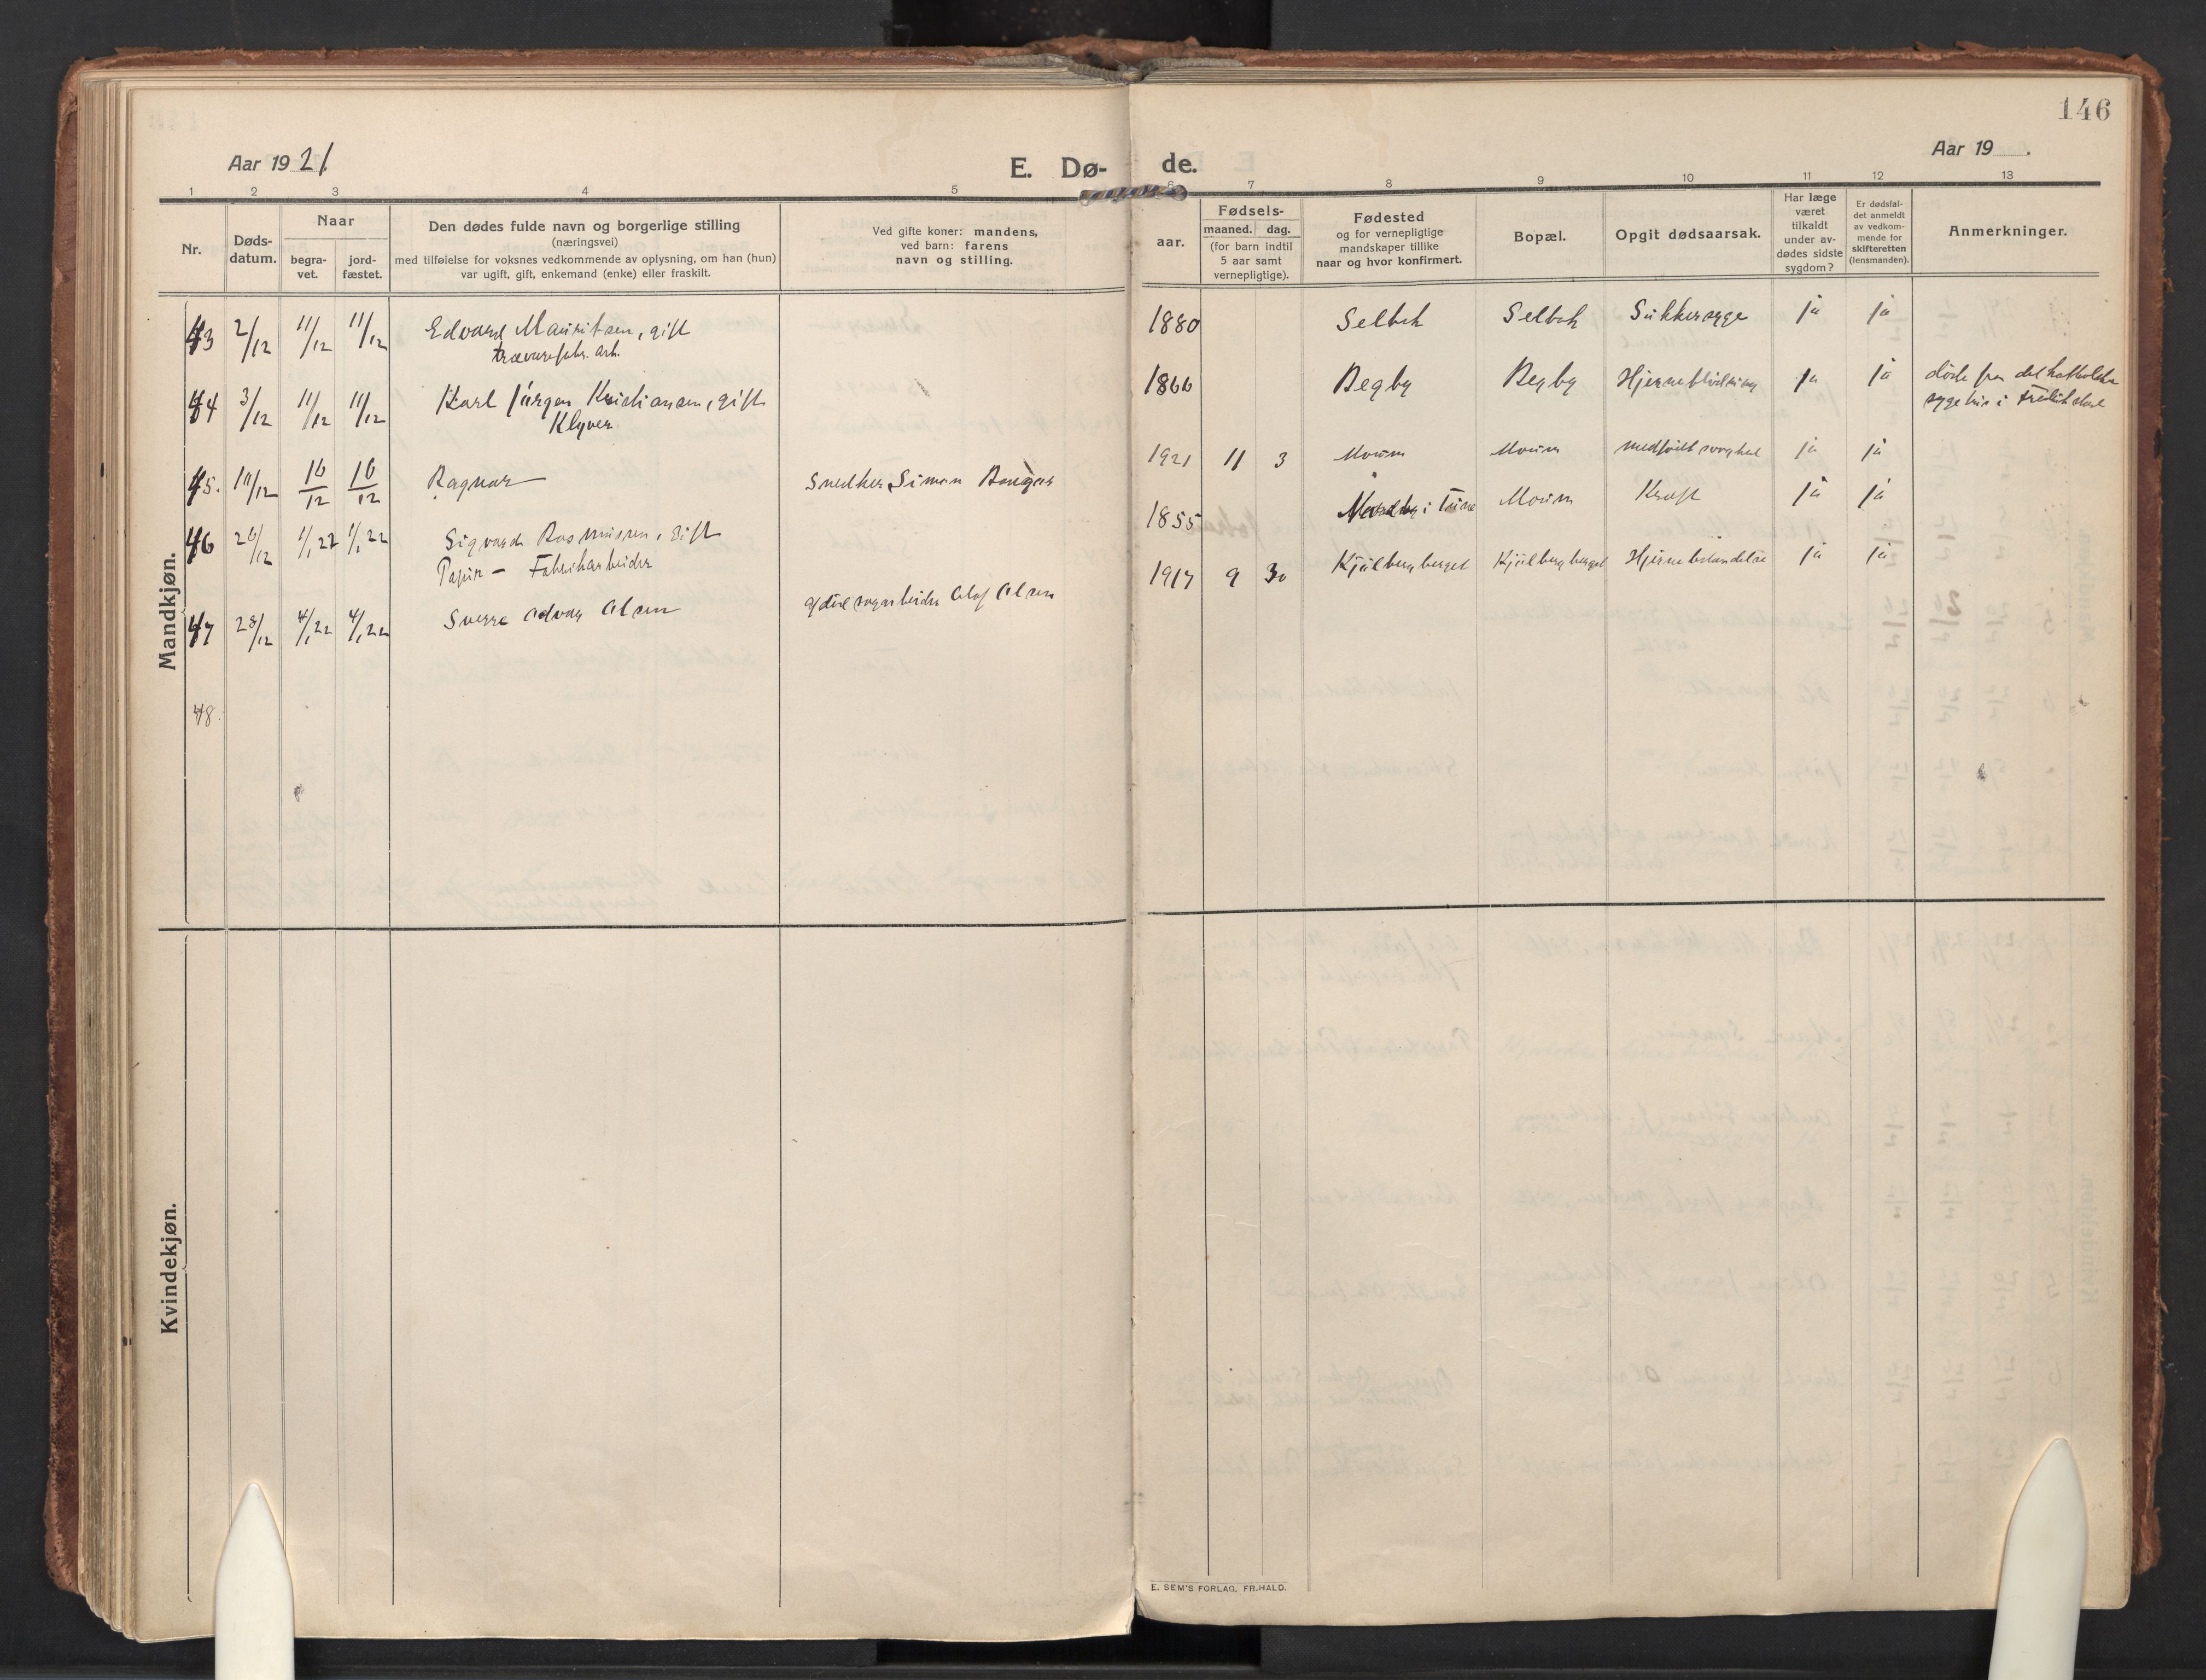 146
Aar 1921.
E. Dø-
de.
Aar 19 .
1 2 3 4 5 6 7 8 9 10 11 12 13
Nr.
Døds-
datum.
Naar
begra-
vet.
jord-
fæstet.
Den dødes fulde navn og borgerlige stilling
(næringsvei)
med tilføielse for voksnes vedkommende av oplysning, om han (hun)
var ugift, gift, enkemand (enke) eller fraskilt.
Ved gifte koner: mandens,
ved barn: farens
navn og stilling.
Fødsels-
aar.
maaned. dag.
(for barn indtil
5 aar samt
vernepligtige).
Fødested
og for vernepligtige
mandskaper tillike
naar og hvor konfirmert.
Bopæl.
Opgit dødsaarsak.
Har læge
været
tilkaldt
under av-
dødes sidste
sygdom?
Er dødsfal-
det anmeldt
av vedkom-
mende for
skifteretten
(lensmanden).
Anmerkninger.
Mandkjøn.
43 2/12 11/12 11/12 Edvard Mauritsen, gift 1880 Selbak Selbak Sukkersyge ja ja
trævarefabr. arb.
44 3/12 11/12 11/12 Karl Jürgen Kristiansen, gift 1866 Begby Begby ja ja døde paa det katholske
Klyver sygehus i Fredrikstad
45. 16/12 16/12 Ragnar Snedker Simon 1921 11 3 Moum Moum medfødt svaghed ja ja
46 26/12 1/1 22 1/1 22 Sigvard Rasmussen, gift 1855 i Tune Moum Kræft ja ja
Papir- Fabrikarbeider
47 28/12 4/1 22 4/1 22 Sverre Olsen Olaf Olsen 1917 9 30 Kjølbergberget Kjølbergberget ja ja
48.
Kvindekjøn.
E. SEM'S FORLAG, FR.HALD.